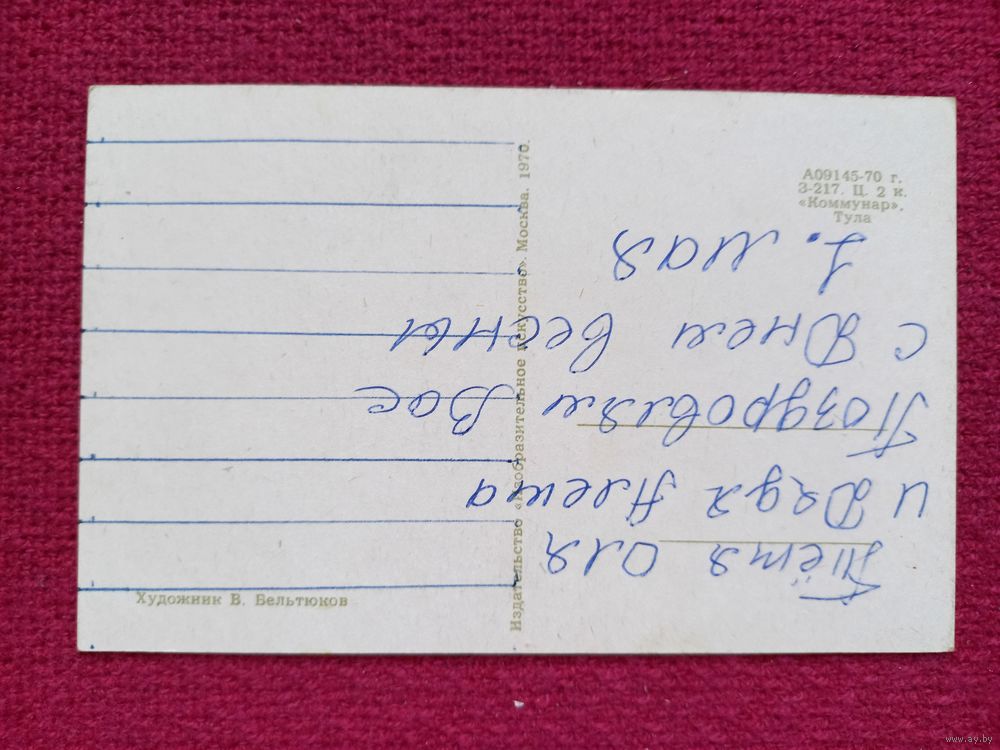 А09145-70 г.
З-217. Ц. 2 к.
«Коммунар».
Тула
Издательство «Изобразительное искусство». Москва. 1970.
Художник В. Бельтюков
Тётя Оля
и Дядя Алеша
Поздровлям Вас
с Днем весны
1. мая
www.ay.by